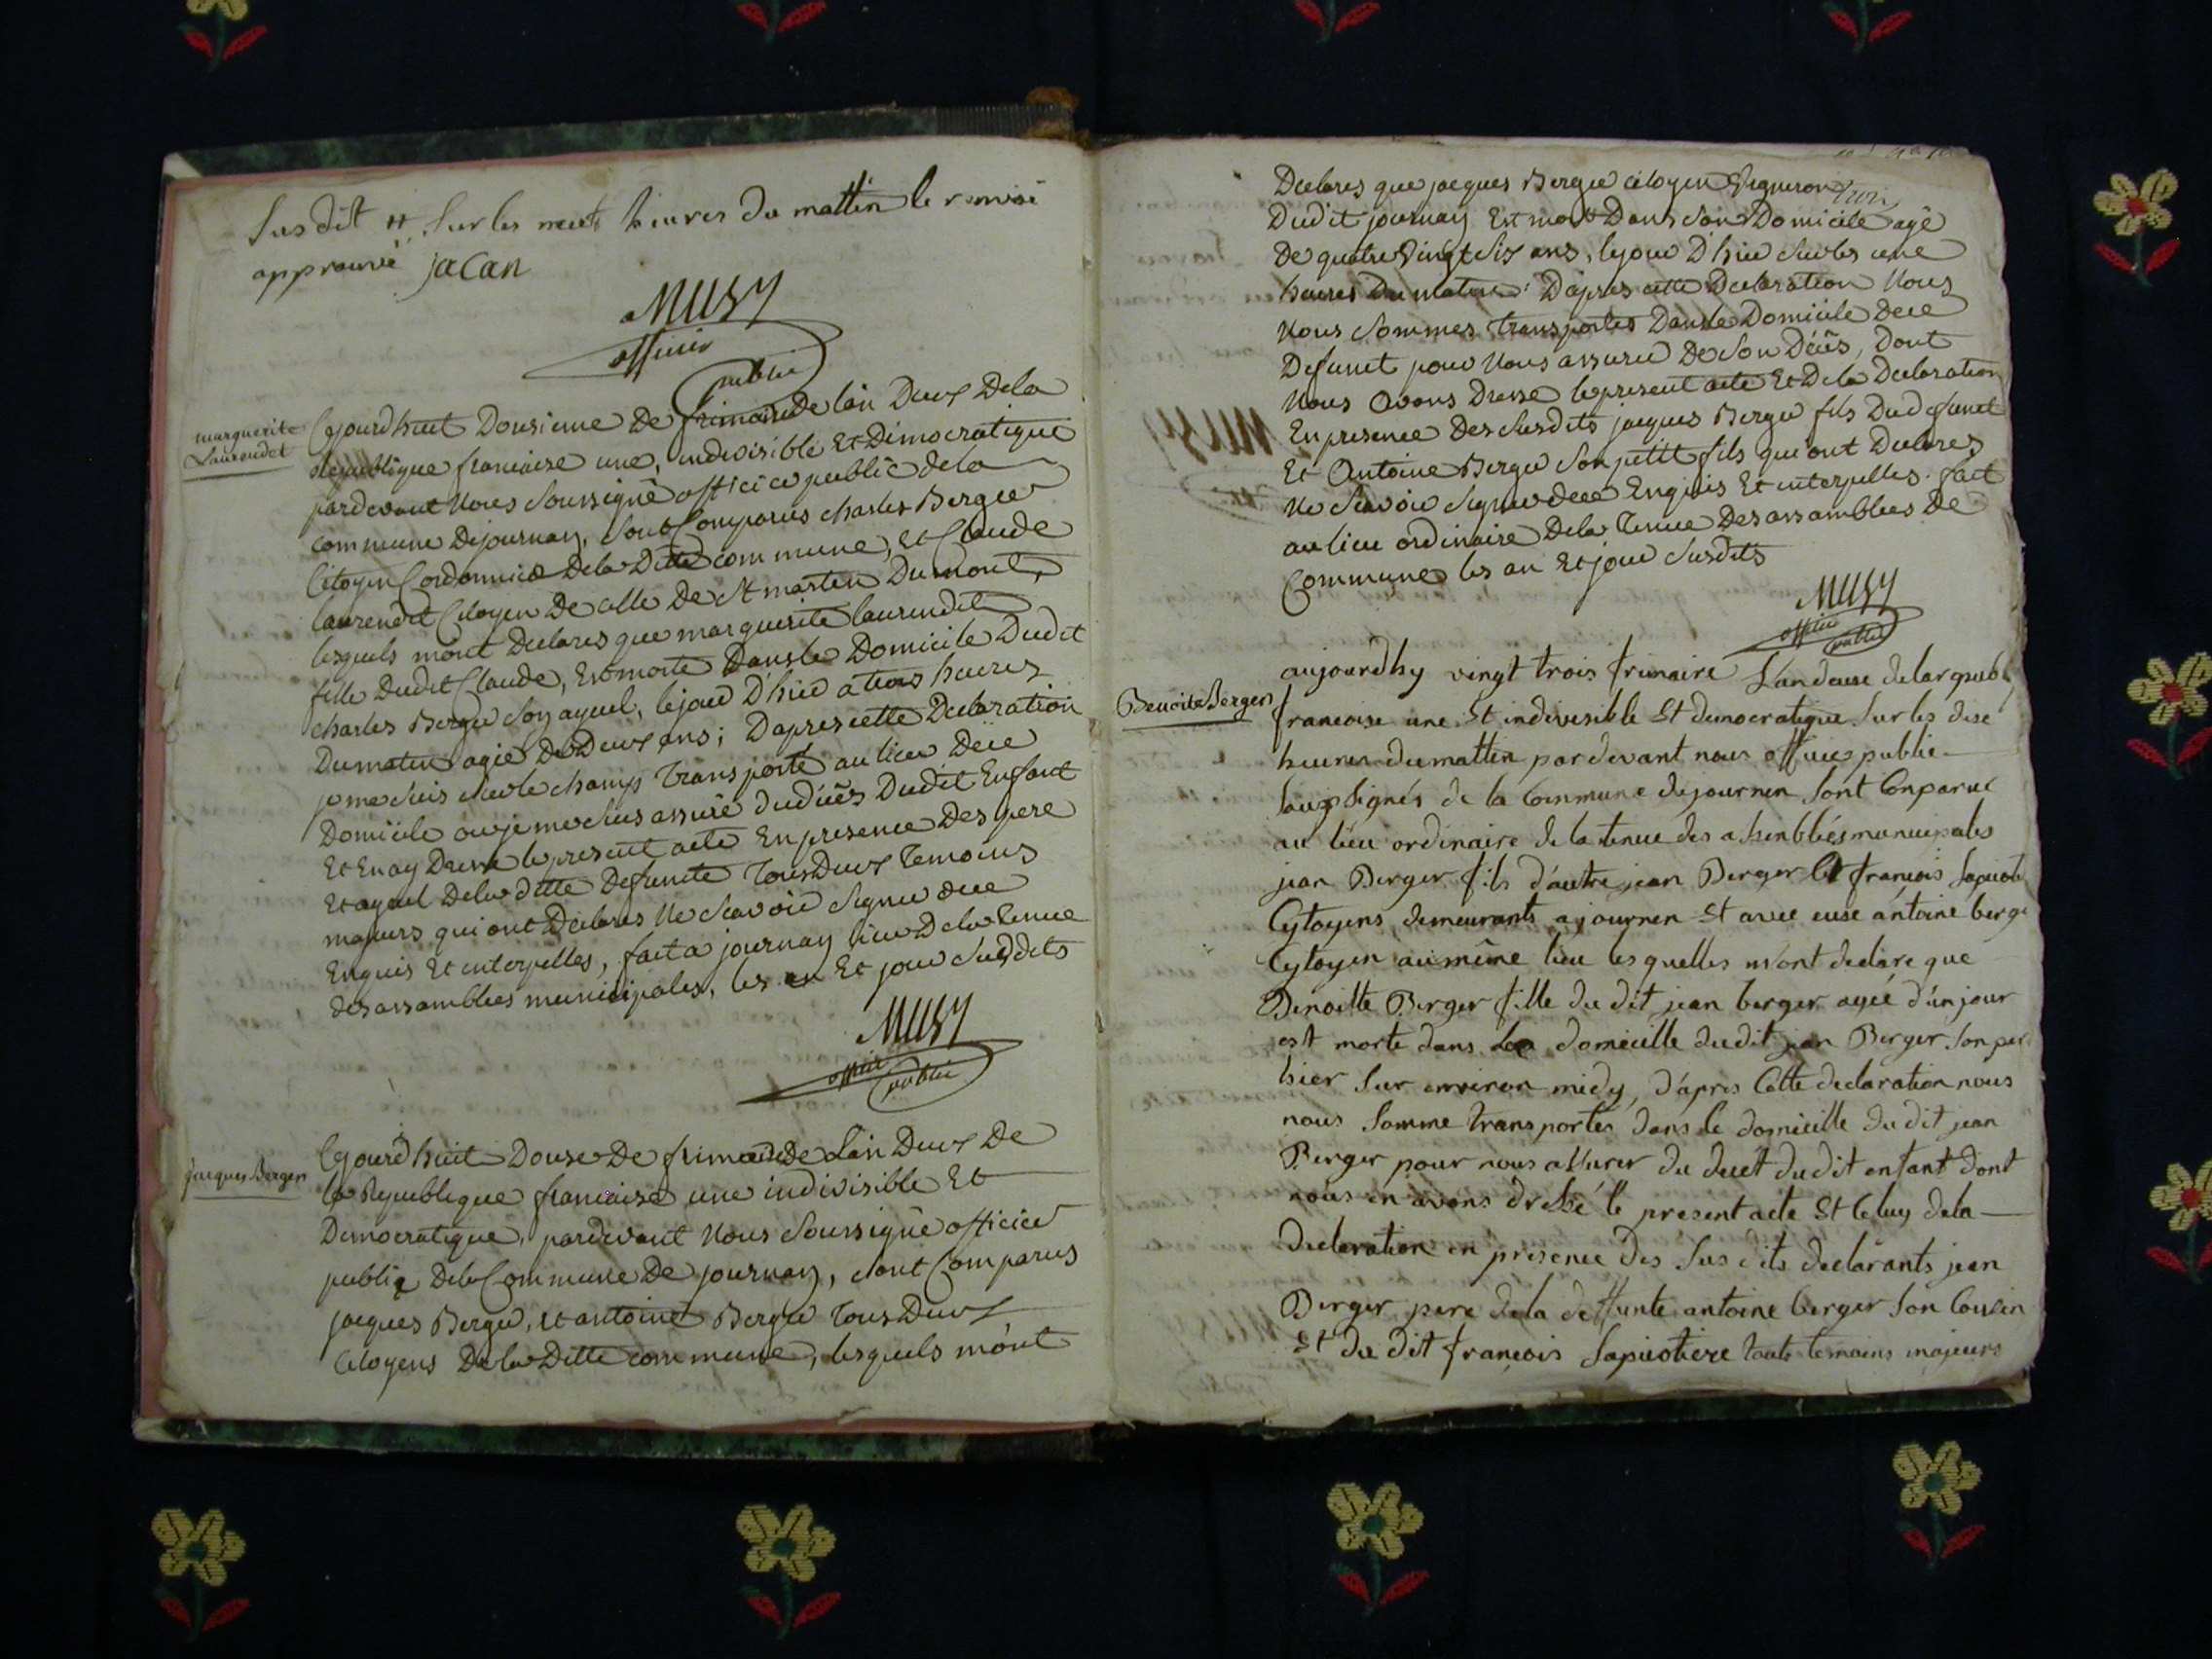 Sus dit ++ Sur les neuf heures du mattin le renvoi
approuvé jacan
MUSY
officier
public
marguerite
Laurendet
Cejourdhuit Dousieme De frimaire de lan Deux Dela
Republique francaise une, indivisible Et Democratique
pardevant Nous Soussigné officier public dela
commune Dejournan, Sont Comparus charles Berger
Citoyen Cordonnier Dela Ditte commune, et Claude
laurendet Citoyen De celle De St martin Dumont,
lesquels mont Declares que marguerite laurendet
fille Dudit Claude, Est morte Dans le Domicile Dudit
charles Berger Son ayeul, le jour D'hier a trois heures
Du matin agée De Deux ans; Dapres cette Declaration
je me Suis Sur le champ Transporté au lieu Dece
Domicile ou je me Suis assuré du deces Dudit Enfant
Et En ay Dressé le present acte En presence Des pere
Et ayeul Dela ditte Defunte Tous Deux Temoins
majeurs qui ont Declares Ne Scavoir Signer dece
Enquis Et interpelles, fait a journan lieu Dela Tenue
des assamblees municipales, les an Et jour Susddits
MUSY
officier
public
jacques Berger
Cejourdhuit Douse De frimaire de Lan Deux De
la Republique francaise une indivisible Et
Democratique, pardevant Nous Soussigné officier
public Dela Commune De journan, Sont Comparus
jacques Berger, et antoine Berger Tous Deux
Citoyens Dela Ditte commune, lesquels m'ont
Declares que jacques Berger citoyen Vigneron
Dudit journan Est mort Dans Son Domicile agé
De quatre Vingt Six ans, le jour D'hier Sur les une
heures Du matin. D'apres cette Declaration Nous
Nous Sommes Transportes Dans le Domicile Dece
Defunt pour Nous assurer De Son Décès, Dont
Nous Avons Dressé le present acte Et Dela Declaration
En presence Des Susdits jacques Berger fils Dudefunt
Et Antoine Berger Son petit fils qui ont Declares
Ne Scavoir Signer dece Enquis Et interpelles. fait
au lieu ordinaire Dela Tenue Des assamblees De
Commune les an Et jour Susdits
MUSY
officier
public
Benoite Berger
aujourdhy vingt trois frimaire L'an deuse de la repub
francoise une St indivesible St democratique Sur les dise
heures du mattin par devant nous officier public
Sousignés de la Commune de journen Sont Conparue
au lieu ordinaire de la tenue des asemblées municipales
jean Berger fils d'autre jean Berger Et francois
Cytoyens demeurants a journen St avec euse antoine berge
Cytoyen au même lieu les quelles m'ont declare que
Benoitte Berger fille du dit jean berger agée d'un jour
est morte dans Le domicille du dit jean Berger Son per
hier Sur environ midy, d'apres Cette declaration nous
nous Somme transportés dans le domicille du dit jean
Berger pour nous assurer du decet du dit enfant dont
nous en avons dressé le present acte St Celuy dela
declaration en presence des Sus dits declarants jean
Berger pere dela deffunte antoine berger Son Cousin
St du dit francois touts temoins majeurs